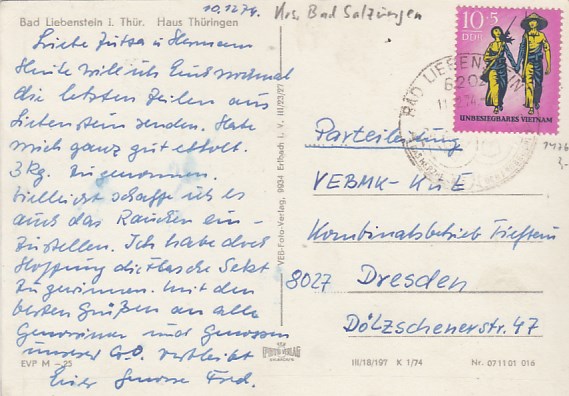 10.12.74. Krs. Bad Salzungen
Bad Liebenstein i. Thür. Haus Thüringen
Liebe Jutta u Hermann
Heute will ich Euch nochmal
die letzten Zeilen aus
Liebenstein senden. Habe
mich ganz gut erholt.
3 kg. zugenommen.
Vielleicht schaffe ich es
auch das Rauchen ein-
zustellen. Ich habe doch
Hoffnung die Flasche Sekt
zu gewinnen. Mit den
besten Grüßen an alle
Genossinnen und Genossen
unserer GO. verbleibt
Euer Genosse Fred.
EVP M -25
VEB-Foto-Verlag, 9934 Erlbach i. V. III/23/27
10+5
DDR
UNBESIEGBARES VIETNAM
BAD LIEBENSTEIN
6202
Parteileitung
VEBMK-KuE
Kombinatsbetrieb Tiefbau
8027 Dresden
Dölzschenerstr. 47
III/18/197 K 1/74 Nr. 071101 016